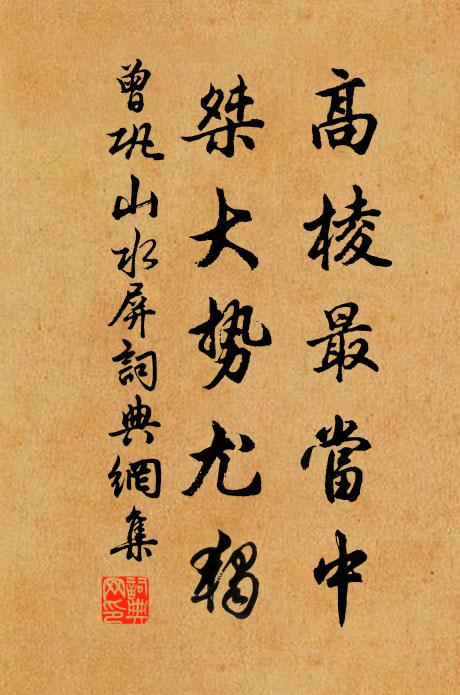 高棱最當中
桀大勢尤獨
曾巩山水屏詞典網集
詞典網印